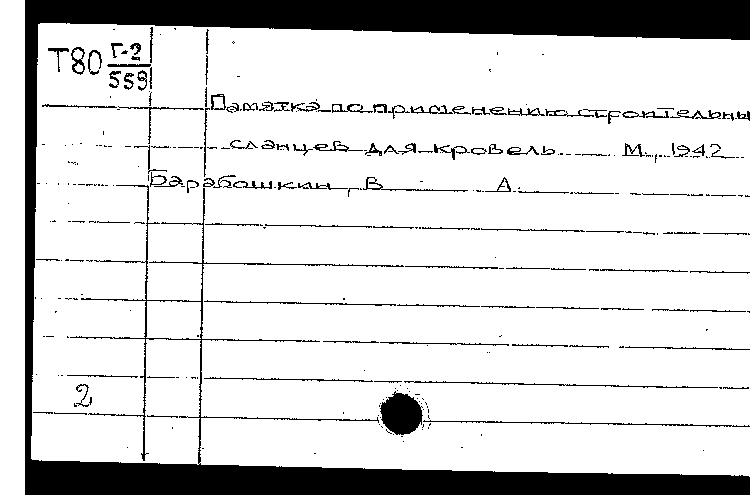 Т80 Г-2
559
Памятка по применению строительны
сланцев для кровель. М., 1942
Барабошкин, В. А.
2